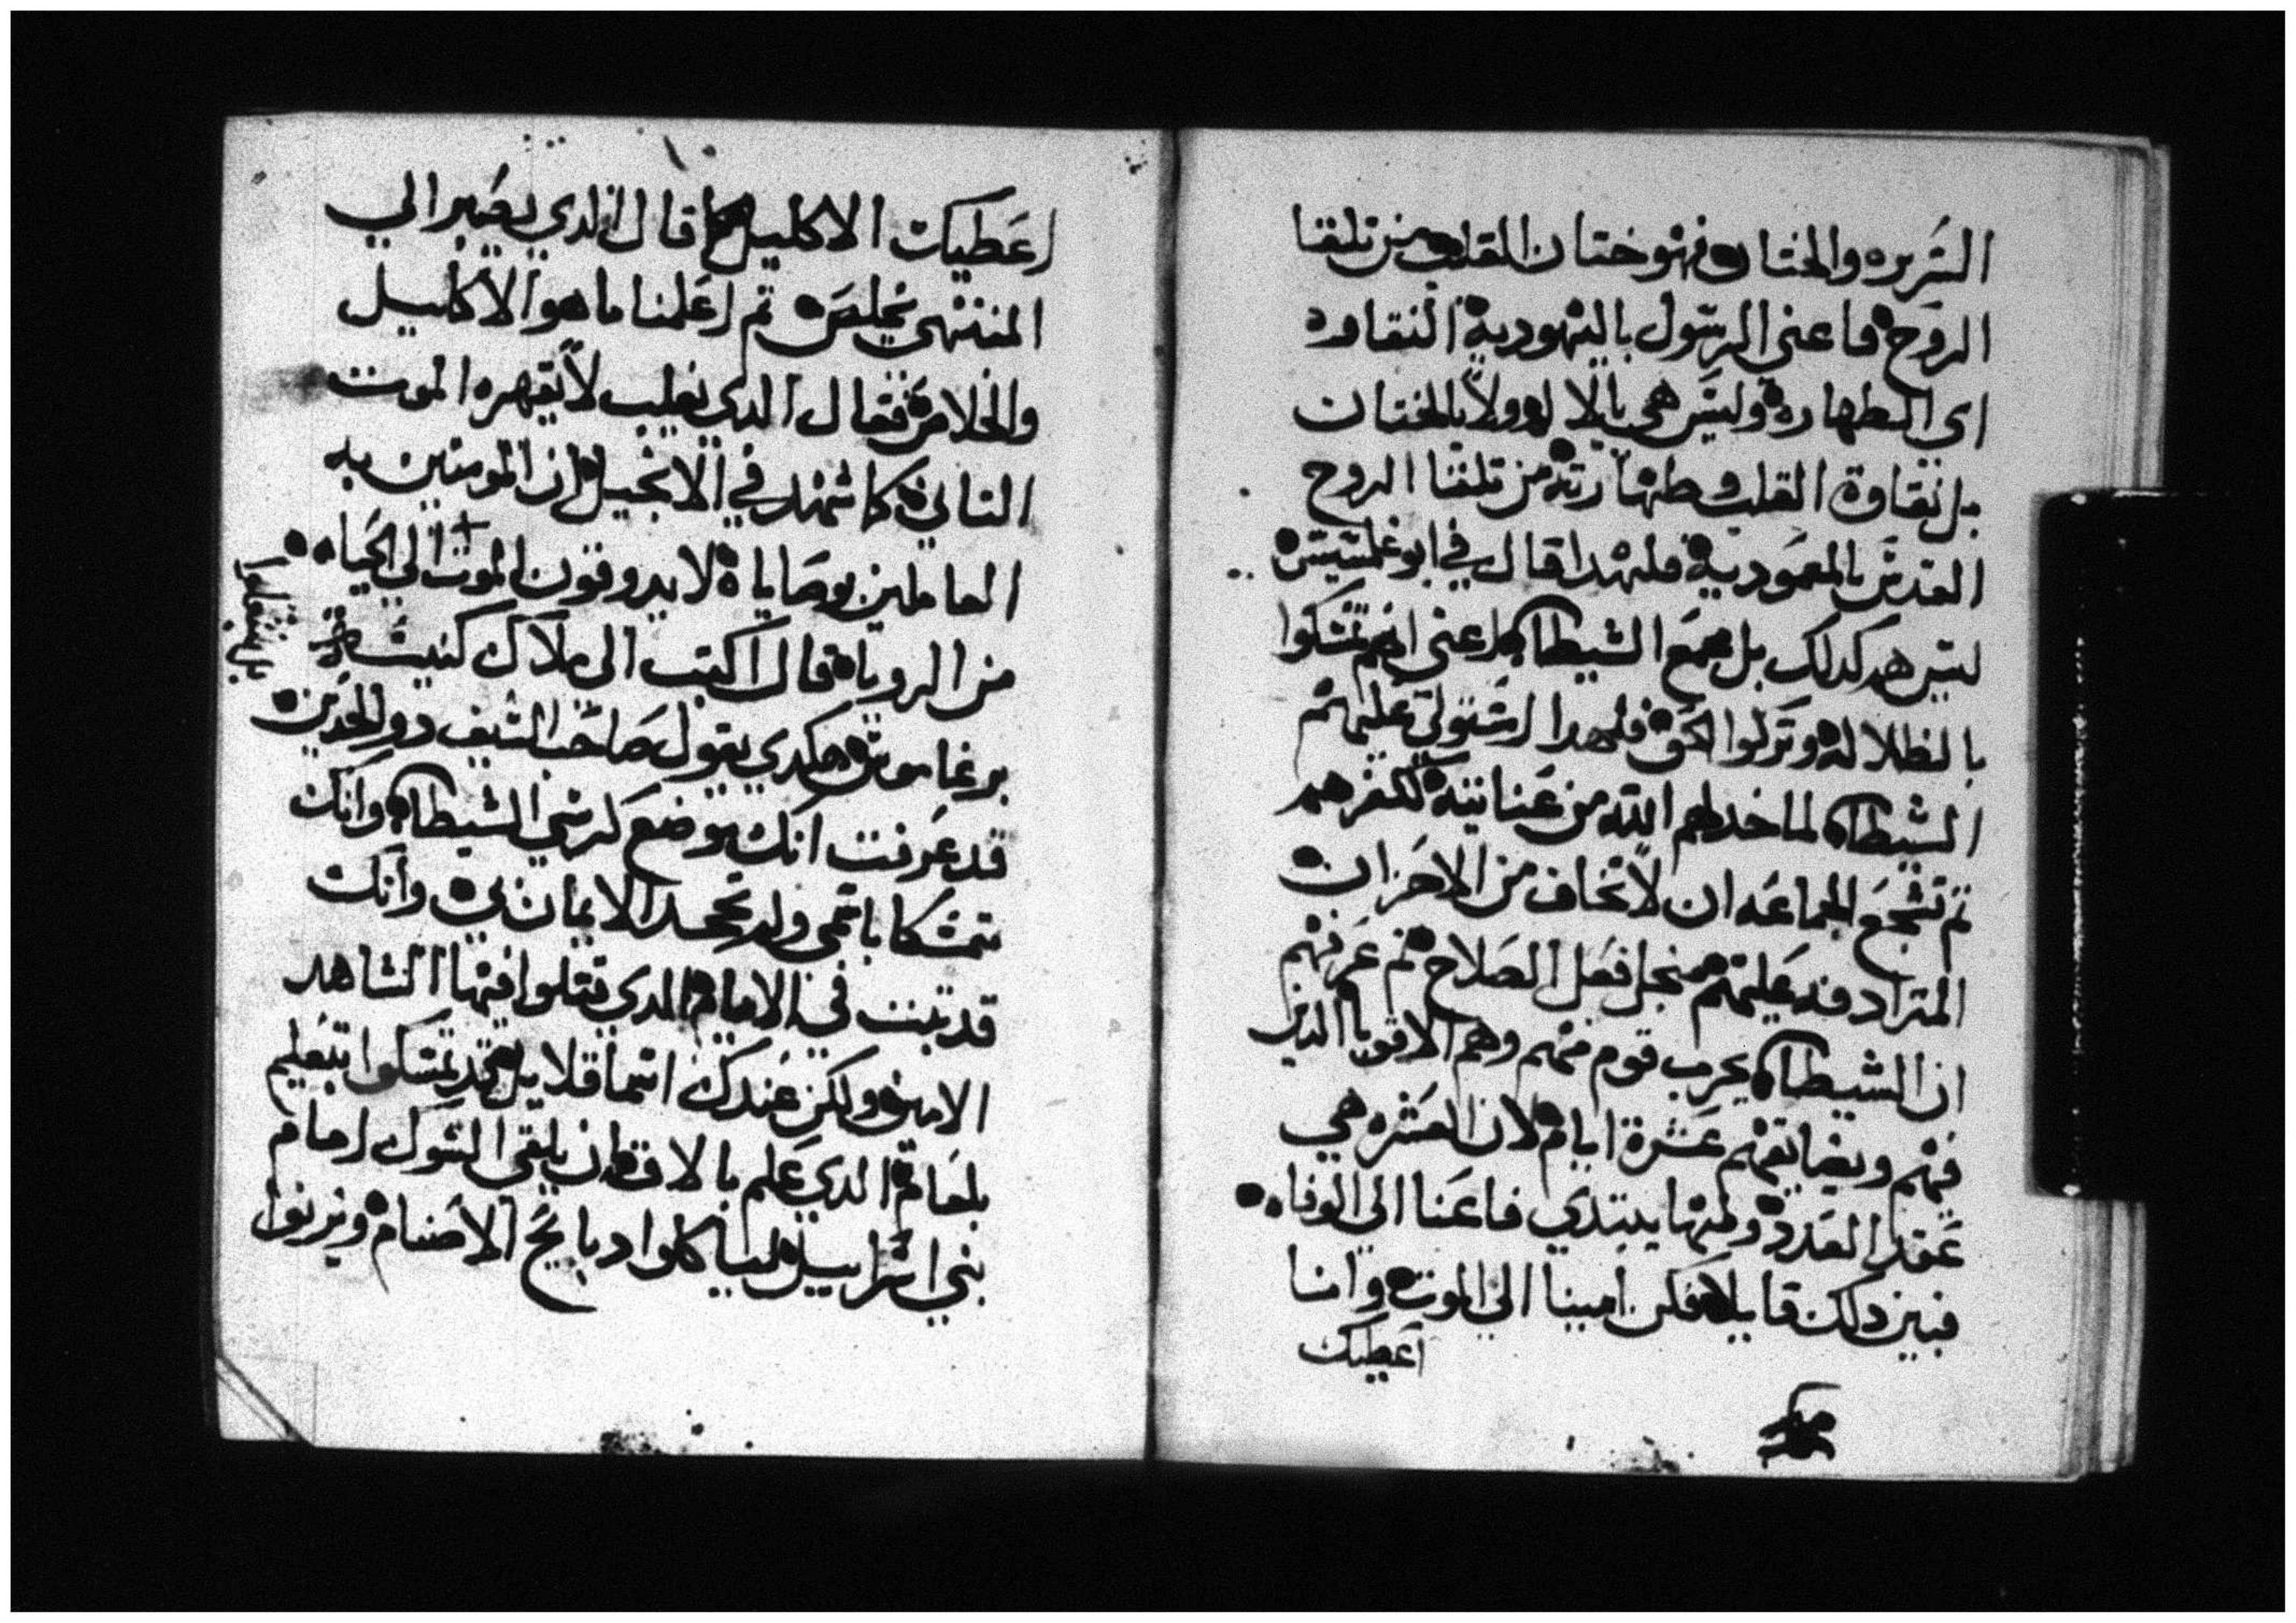 السريره والختان فهو ختان القلب من تلقا
الروح فاعنى الرسول باليهودية النقاوه
اى الطهاره وليس هي بالاله ولا بالختان
بل نقاوة القلب وطهارته من تلقا الروح
القدس بالمعمودية فلهدا قال في ابوغلمسيس
ليس هم كدلك بل مجمع الشيطان اعنى انهم تمسكوا
بالظلاله وتركوا الحق فلهدا استولى عليهم
الشيطان لما خدلهم الله من عنايته لكفرهم
تم تشجع الجماعه ان لا تخاف من الاحزان
المترادفه عليهم منجل فعل الصلاح تم عرفهم
ان الشيطان يحرب قوم منهم وهم الاقويا الدين
فيهم ويضايقهم عشرة ايام لان العشره هي
عقد العدد ومنها يبتدي فاعنا الى الوفاه
فبين دلك قايلا فكن امينا الى الموت وانا
اعطيك
اعطيك الاكليل كما قال الدي يصبر الي
المنتهي يخلص تم اعلمنا ما هو الاكليل
والخلاص فقال الدى يغلب لا يقهره الموت
التاني كما شهد في الانجيل ان المومنين به
العاملين وصاياه لا يدوقون الموت الى الحياه
من الرويا قال اكتب الى ملاك كنيسة
برغاموس هكدي يقول صاحب السيف دو الحدين
قد عرفت انك موضع كرسي الشيطان وانك
متمسكا باسمى ولم تجحد الايمان بي وانك
قد تبت في الايام الدي قتلوا فيها الشاهد
الامين ولكن عندك اسما قلايل تمسكوا بتعليم
بلعام الدي علم بالاق ان يلقى الشوك امام
بني اسراييل لياكلوا دبايح الاصنام ويزنوا